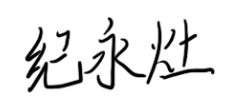 纪永灶